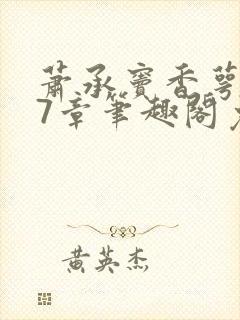 萧承窦香萼
7章笔趣阁
黄英杰